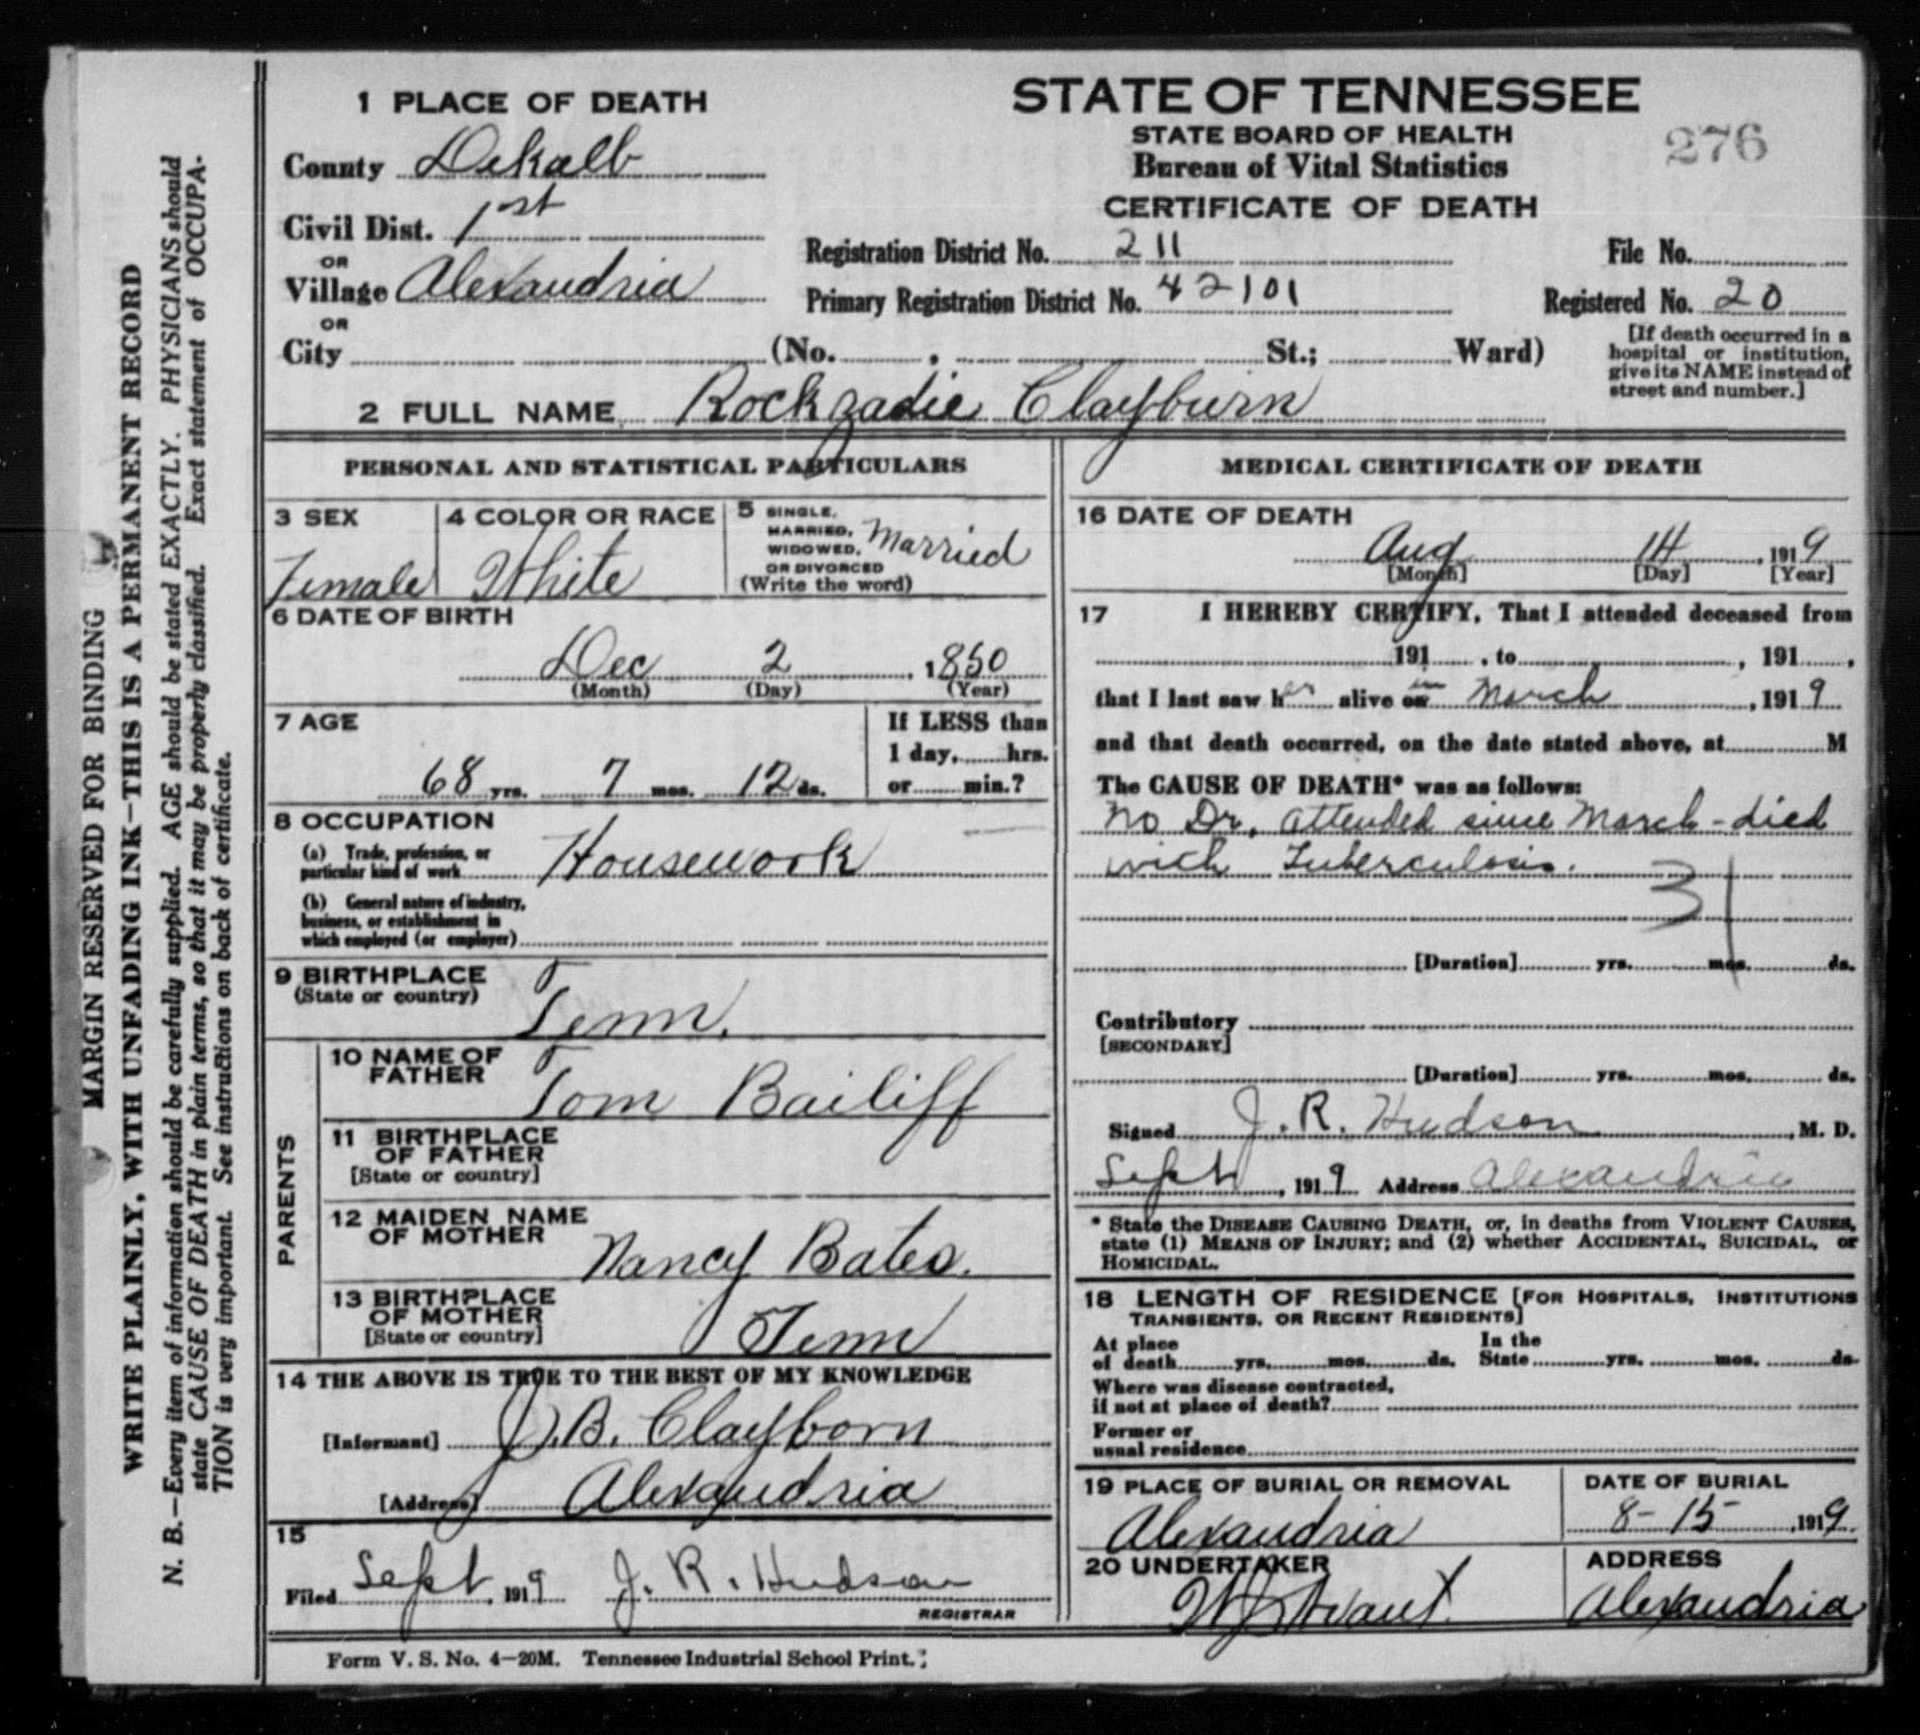 MARGIN RESERVED FOR BINDING
WRITE PLAINLY, WITH UNFADING INK—THIS IS A PERMANENT RECORD
N. B.—Every item of information should be carefully supplied. AGE should be stated EXACTLY. PHYSICIANS should
state CAUSE OF DEATH in plain terms, so that it may be properly classified. Exact statement of OCCUPA-
TION is very important. See instructions on back of certificate.
1 PLACE OF DEATH
County Dekalb
Civil Dist. 1st
OR
Village Alexandria
OR
City (No. , St.; Ward)
STATE OF TENNESSEE
STATE BOARD OF HEALTH
Bureau of Vital Statistics
CERTIFICATE OF DEATH
276
Registration District No. 211
File No.
Primary Registration District No. 42101
Registered No. 20
[If death occurred in a
hospital or institution,
give its NAME instead of
street and number.]
2 FULL NAME Rockzadie Clayburn
PERSONAL AND STATISTICAL PARTICULARS
3 SEX
Female
4 COLOR OR RACE
White
5 SINGLE,
MARRIED,
WIDOWED,
OR DIVORCED
(Write the word)
Married
6 DATE OF BIRTH
Dec 2, 1850
(Month) (Day) (Year)
7 AGE
68 yrs. 7 mos. 12 ds.
If LESS than
1 day, hrs.
or min.?
8 OCCUPATION
(a) Trade, profession, or
particular kind of work Housework
(b) General nature of industry,
business, or establishment in
which employed (or employer)
9 BIRTHPLACE
(State or country)
Tenn.
PARENTS
10 NAME OF
FATHER
Tom Bailiff
11 BIRTHPLACE
OF FATHER
[State or country]
12 MAIDEN NAME
OF MOTHER
Nancy Bates.
13 BIRTHPLACE
OF MOTHER
[State or country]
Tenn
14 THE ABOVE IS TRUE TO THE BEST OF MY KNOWLEDGE
[Informant] J.B. Clayborn
[Address] Alexandria
15
Filed Sept, 1919 J. R. Hudson
REGISTRAR
MEDICAL CERTIFICATE OF DEATH
16 DATE OF DEATH
Aug 14, 1919
[Month] [Day] [Year]
17 I HEREBY CERTIFY, That I attended deceased from
191 , to , 191 ,
that I last saw her alive on in March, 1919
and that death occurred, on the date stated above, at M
The CAUSE OF DEATH* was as follows:
No Dr. attended since March - died
with Tuberculosis.
31
[Duration] yrs. mos. ds.
Contributory
[SECONDARY]
[Duration] yrs. mos. ds.
Signed J. R. Hudson, M. D.
Sept, 1919 Address Alexandria
* State the DISEASE CAUSING DEATH, or, in deaths from VIOLENT CAUSES,
state (1) MEANS OF INJURY; and (2) whether ACCIDENTAL, SUICIDAL, or
HOMICIDAL.
18 LENGTH OF RESIDENCE [FOR HOSPITALS, INSTITUTIONS
TRANSIENTS, OR RECENT RESIDENTS]
At place
of death yrs. mos. ds.
In the
State yrs. mos. ds.
Where was disease contracted,
if not at place of death?
Former or
usual residence
19 PLACE OF BURIAL OR REMOVAL
Alexandria
DATE OF BURIAL
8-15, 1919
20 UNDERTAKER
Avant
ADDRESS
Alexandria
Form V. S. No. 4—20M. Tennessee Industrial School Print.